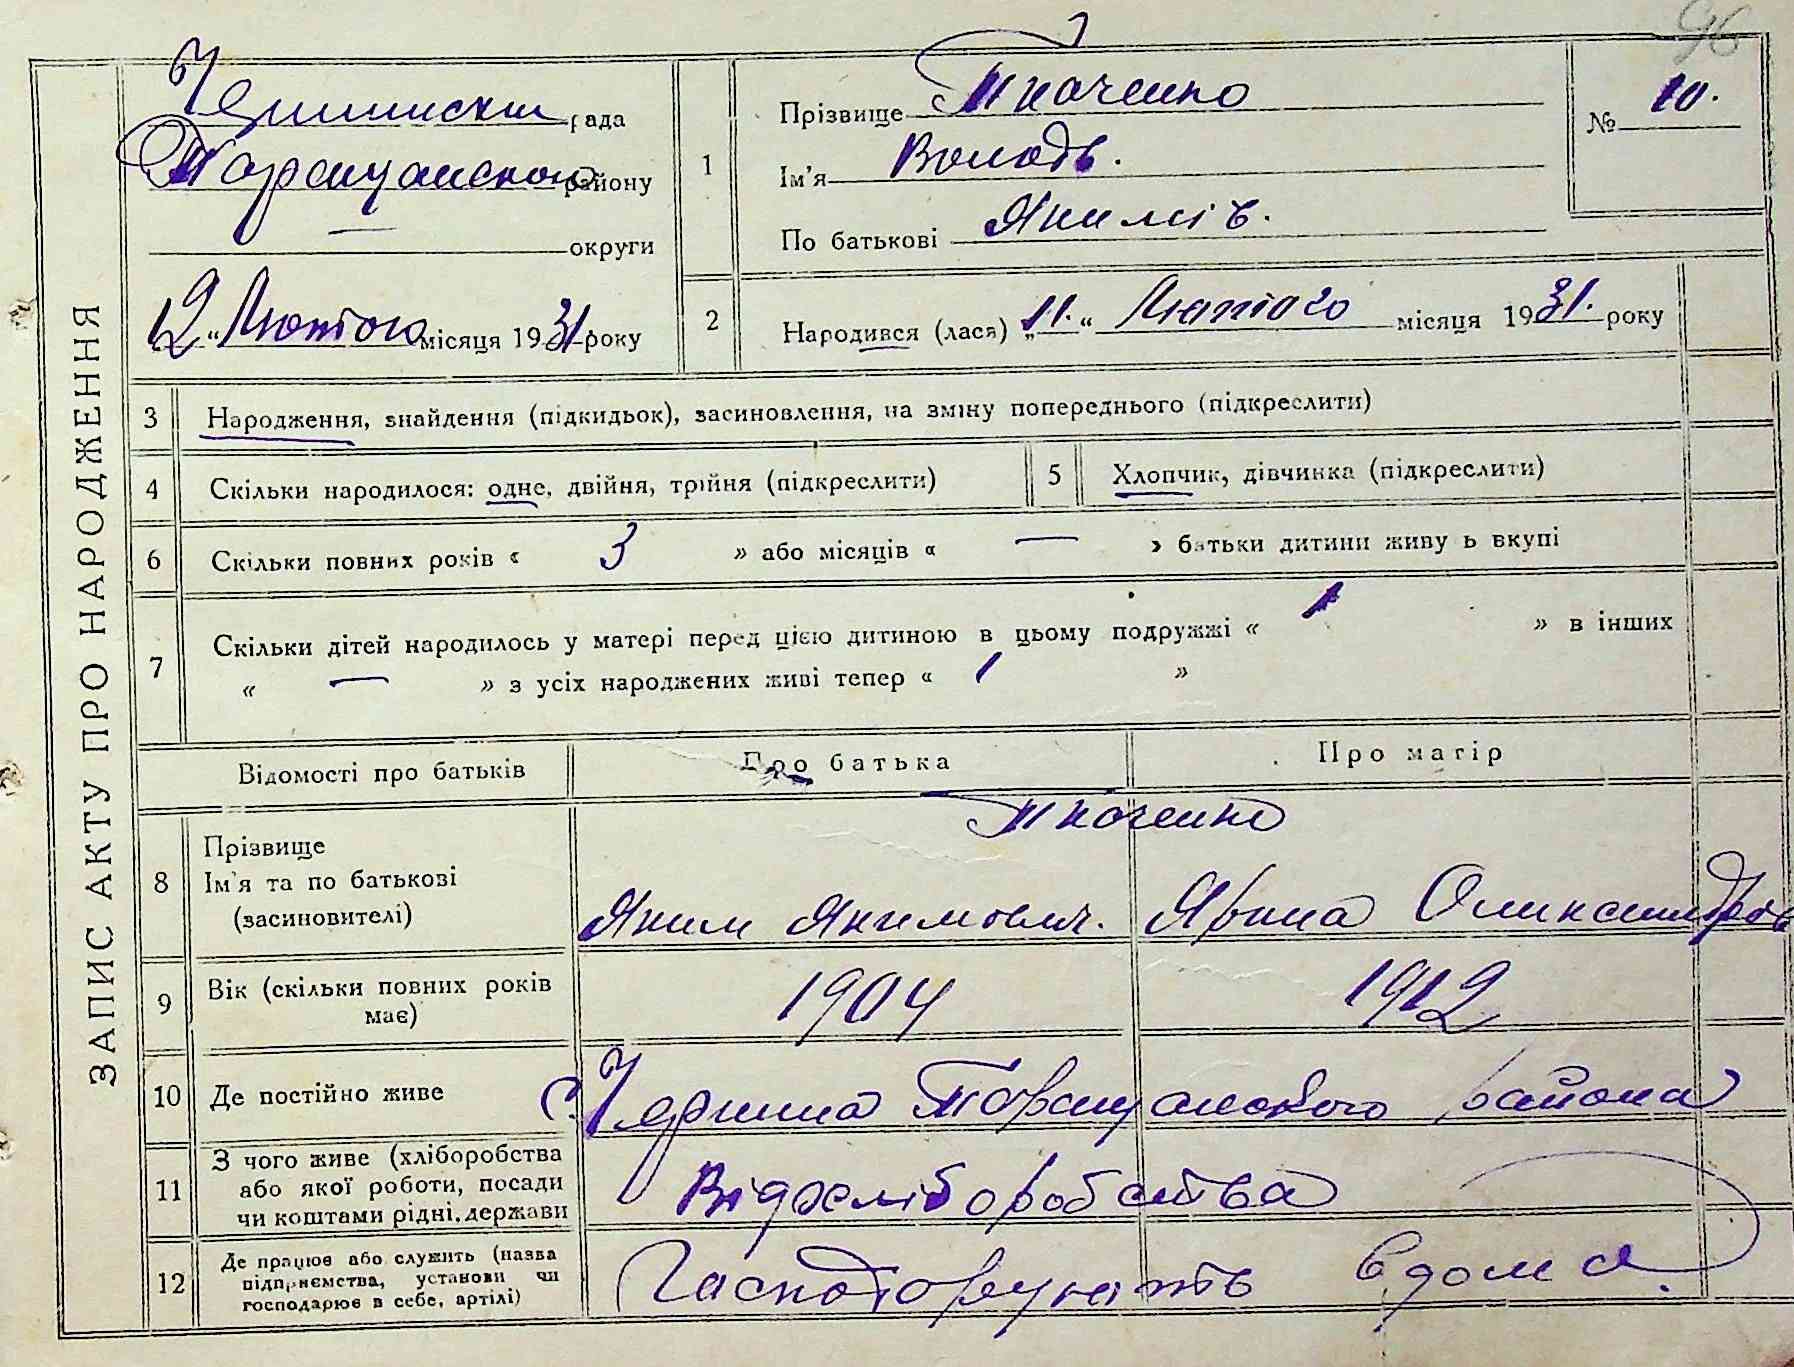 96
ЗАПИС АКТУ ПРО НАРОДЖЕННЯ
рада
Таращанского району
округи
12 " Лютого місяця 1931 року
1
Прізвище Ткаченко
Ім'я Володь.
По батькові Якимів.
№ 10.
2
Народився (лася) „11.“ Лютого місяця 1931. року
3 Народження, знайдення (підкидьок), засиновлення, на зміну попереднього (підкреслити)
4 Скільки народилося: одне, двійня, трійня (підкреслити)
5 Хлопчик, дівчинка (підкреслити)
6 Скільки повних років « 3 » або місяців « — » батьки дитини живуть вкупі
7 Скільки дітей народилось у матері перед цією дитиною в цьому подружжі « 1 » в інших
« — » з усіх народжених живі тепер « 1 »
Відомості про батьків
Про батька
Про матір
8 Прізвище
Ім'я та по батькові
(засиновителі)
Ткаченко
Яким Якимович.
Ярина Олександров
9 Вік (скільки повних років
має)
1904
1912
10 Де постійно живе
с. Чернина Таращанского района
11 З чого живе (хліборобства
або якої роботи, посади
чи коштами рідні, держави
Від хліборобства
12 Де працює або служить (назва
підприємства, установи чи
господарює в себе, артілі)
Гасподорують вдома.